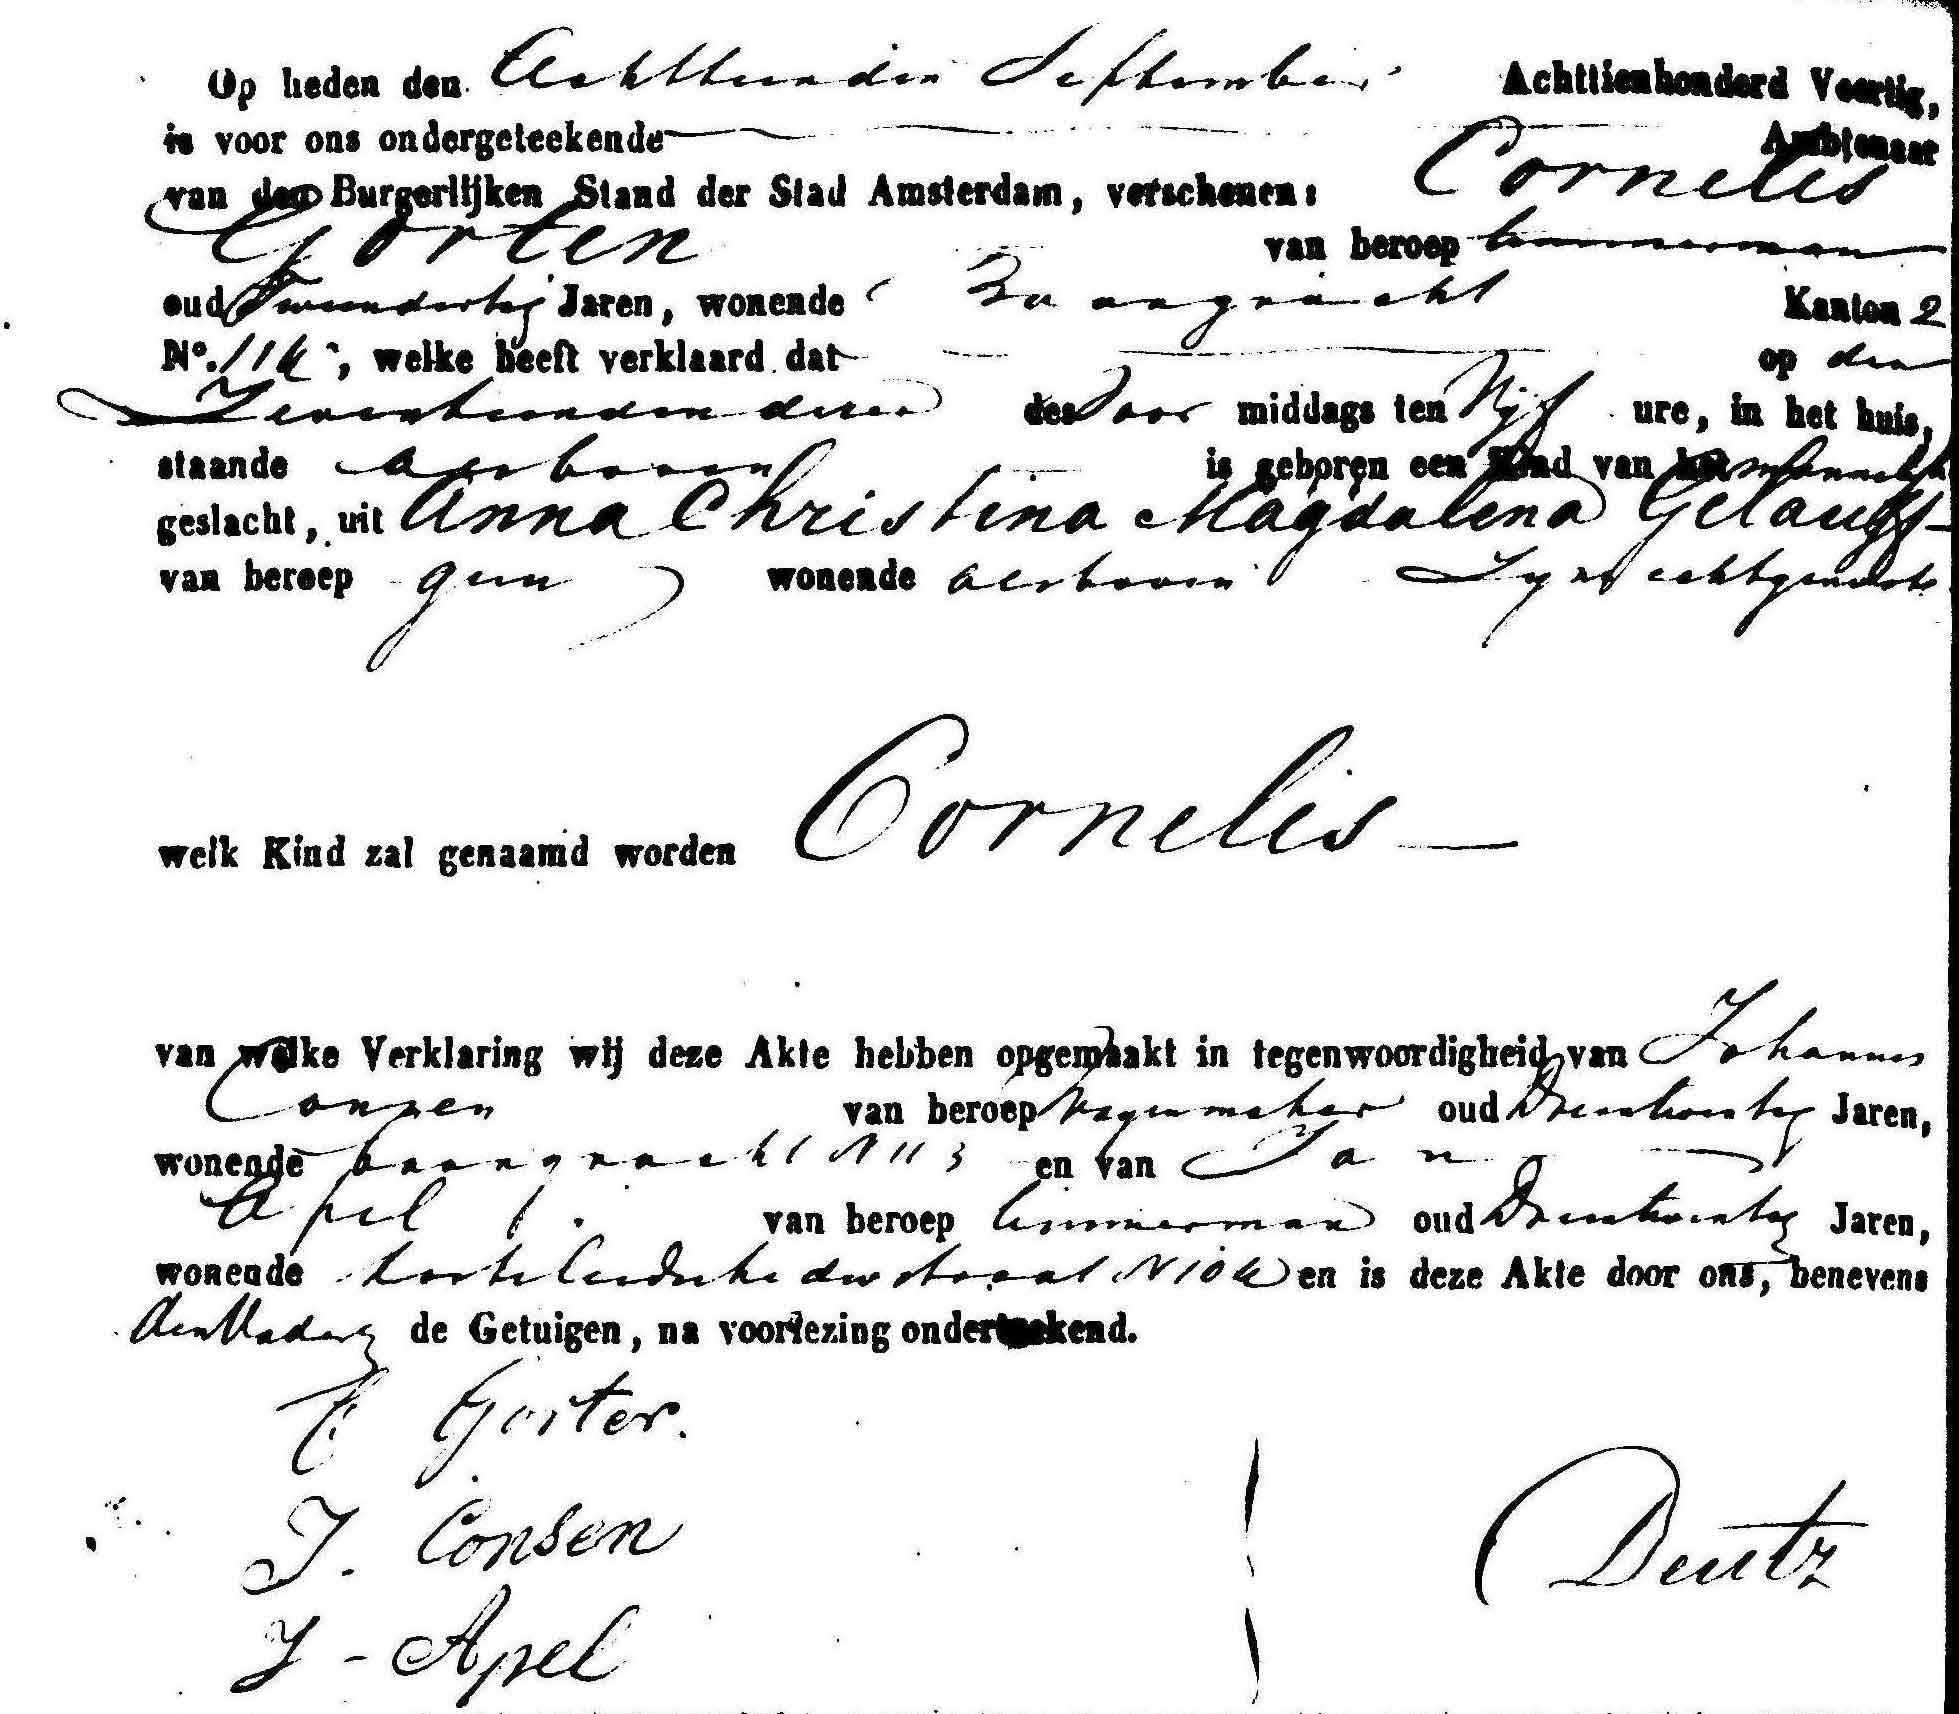 Op heden den Achttienden September Achttienhonderd Veertig,
is voor ons ondergeteekende Ambtenaar
van den Burgerlijken Stand der Stad Amsterdam, verschenen: Cornelis
Gorter van beroep timmerman
oud Tweendertig Jaren, wonende Baangracht Kanton 2
No. 114, welke heeft verklaard dat op den
Zeventienden dezer des Voor middags ten Vijf ure, in het huis,
staande als boven is geboren een Kind van het mannelijk
geslacht, uit Anna Christina Magdalena Gelauff
van beroep geen wonende als boven Zyne echtgenoote
welk Kind zal genaamd worden Cornelis
van welke Verklaring wij deze Akte hebben opgemaakt in tegenwoordigheid van Johannes
Consen van beroep Wagenmaker oud Drieentwintig Jaren,
wonende baangracht N 113 en van Jan
Apel van beroep timmerman oud Drieentwintig Jaren,
wonende Korte Leidsche dwstraat N 104 en is deze Akte door ons, benevens
den Vader & de Getuigen, na voorlezing onderteekend.
C Gorter.
J. Consen
Deutz
J - Apel